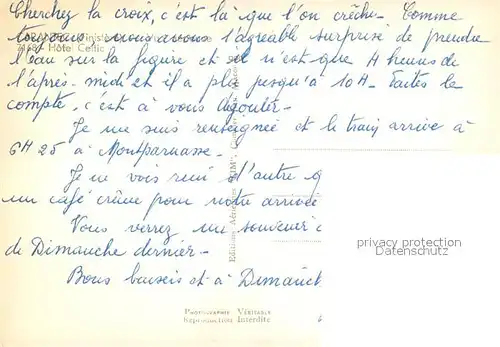 Cherchez la croix, c'est là que l'on crèche. Comme
toujours nous avons l'agréable surprise de prendre
Hôtel Celtic
l'eau sur la figure et il n'est que 4 heures de
l'après-midi et il a plu jusqu'à 10H. Faites le
compte, c'est à vous dégouter.
Je me suis renseignée et le train arrive à
6H25 à Montparnasse.
Je ne vois rien d'autre q
un café crème pour notre arrivée
Vous verrez un souvenir
de Dimanche dernier.
Bons baisers et à Dimanch
privacy protection
Datenschutz
Photographie Véritable
Reproduction Interdite